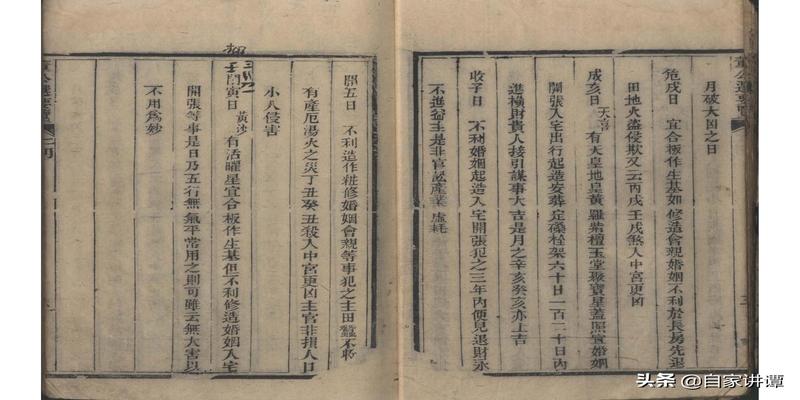 月破大凶之日
危戌日 宜合板作生基如修造會親婚姻不利於長房先退
田地火盜侵欺又云丙戌壬戌煞人中宮更凶
成亥日 天喜 有天皇地皇黃羅紫檀玉堂聚寶星蓋照宜婚姻
開張入宅出行起造安葬定磉栓架六十日一百二十日內
進橫財貴人接引謀事大吉是月之辛亥癸亥亦上吉
收子日 不利婚姻起造入宅開張犯之三年內便見退財永
不進益主是非官訟產業虛耗
開丑日 不利造作粧修婚姻會親等事犯之主田蠶不收
有產厄湯火之災丁丑癸丑殺入中宮更凶主官非損人口
小人侵害
閉寅日 黃沙 有活曜星宜合板作生基但不利修造婚姻入宅
開張等事是日乃五行無氣平常用之則可雖云無大害以
不用為妙
董公選要覽
頭条 @自家讲谭